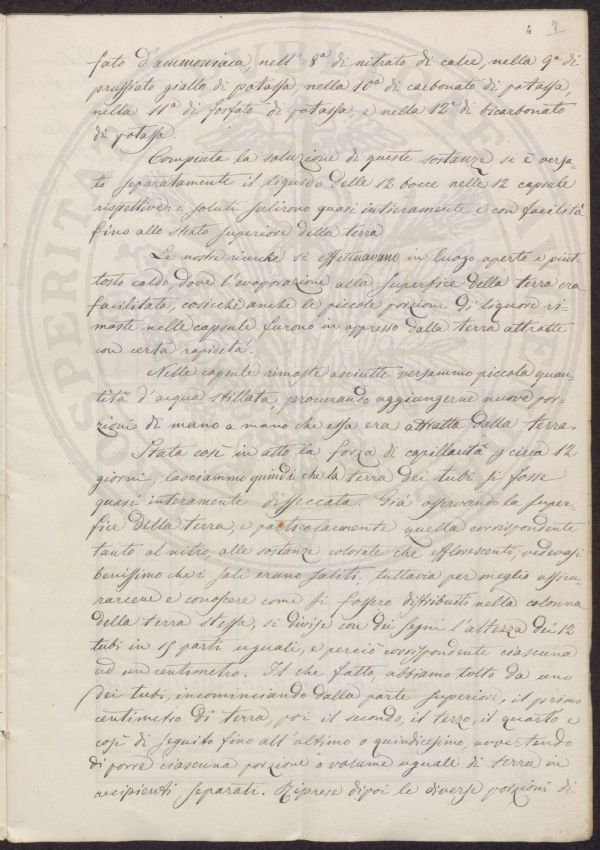 4 7
fato d'ammoniaca, nell' 8ª di nitrato di calce, nella 9ª di
prussiato giallo di potassa, nella 10ª di carbonato di potassa,
nella 11ª di fosfato di potassa, e nella 12ª di bicarbonato
di potassa.
Compiuta la soluzione di queste sostanze si è versa-
to separatamente il liquido delle 12 bocce nelle 12 capsule
rispettive: i soluti salirono quasi intieramente e con facilità
fino allo strato superiore della terra
Le nostre ricerche si effettuavano in luogo aperto e piut-
tosto caldo, dove l'evaporazione alla superfice della terra era
facilitata, cosicché anche le piccole porzioni di liquore ri-
maste nelle capsule furono in appresso dalla terra attratte
con certa rapidità.
Nelle capsule rimaste asciutte versammo piccola quan-
tità d'acqua stillata, procurando aggiungerne nuove por-
zioni di mano a mano che essa era attratta dalla terra.
Stata così in atto la forza di capillarità p circa 12
giorni, lasciammo quindi che la terra dei tubi si fosse
quasi interamente disseccata. Già osservando la super-
fice della terra, e particolarmente quella corrispondente
tanto al nitro, alle sostanze colorate che efflorescenti, vedevasi
benissimo che i sali erano saliti, tuttavia per meglio assicu-
rarcene e conoscere come si fossero distribuiti nella colonna
della terra stessa, si divise con dei segni l'altezza dei 12
tubi in 15 parti uguali, e perciò corrispondente ciascuna
ad un centimetro. Il che fatto, abbiamo tolto da uno
dei tubi, incominciando dalla parte superiore, il primo
centimetro di terra, poi il secondo, il terzo, il quarto e
così di seguito fino all'ultimo o quindicesimo, avvertendo
di porre ciascuna porzione o volume uguale di terra in
recipienti separati. Riprese dipoi le diverse porzioni di